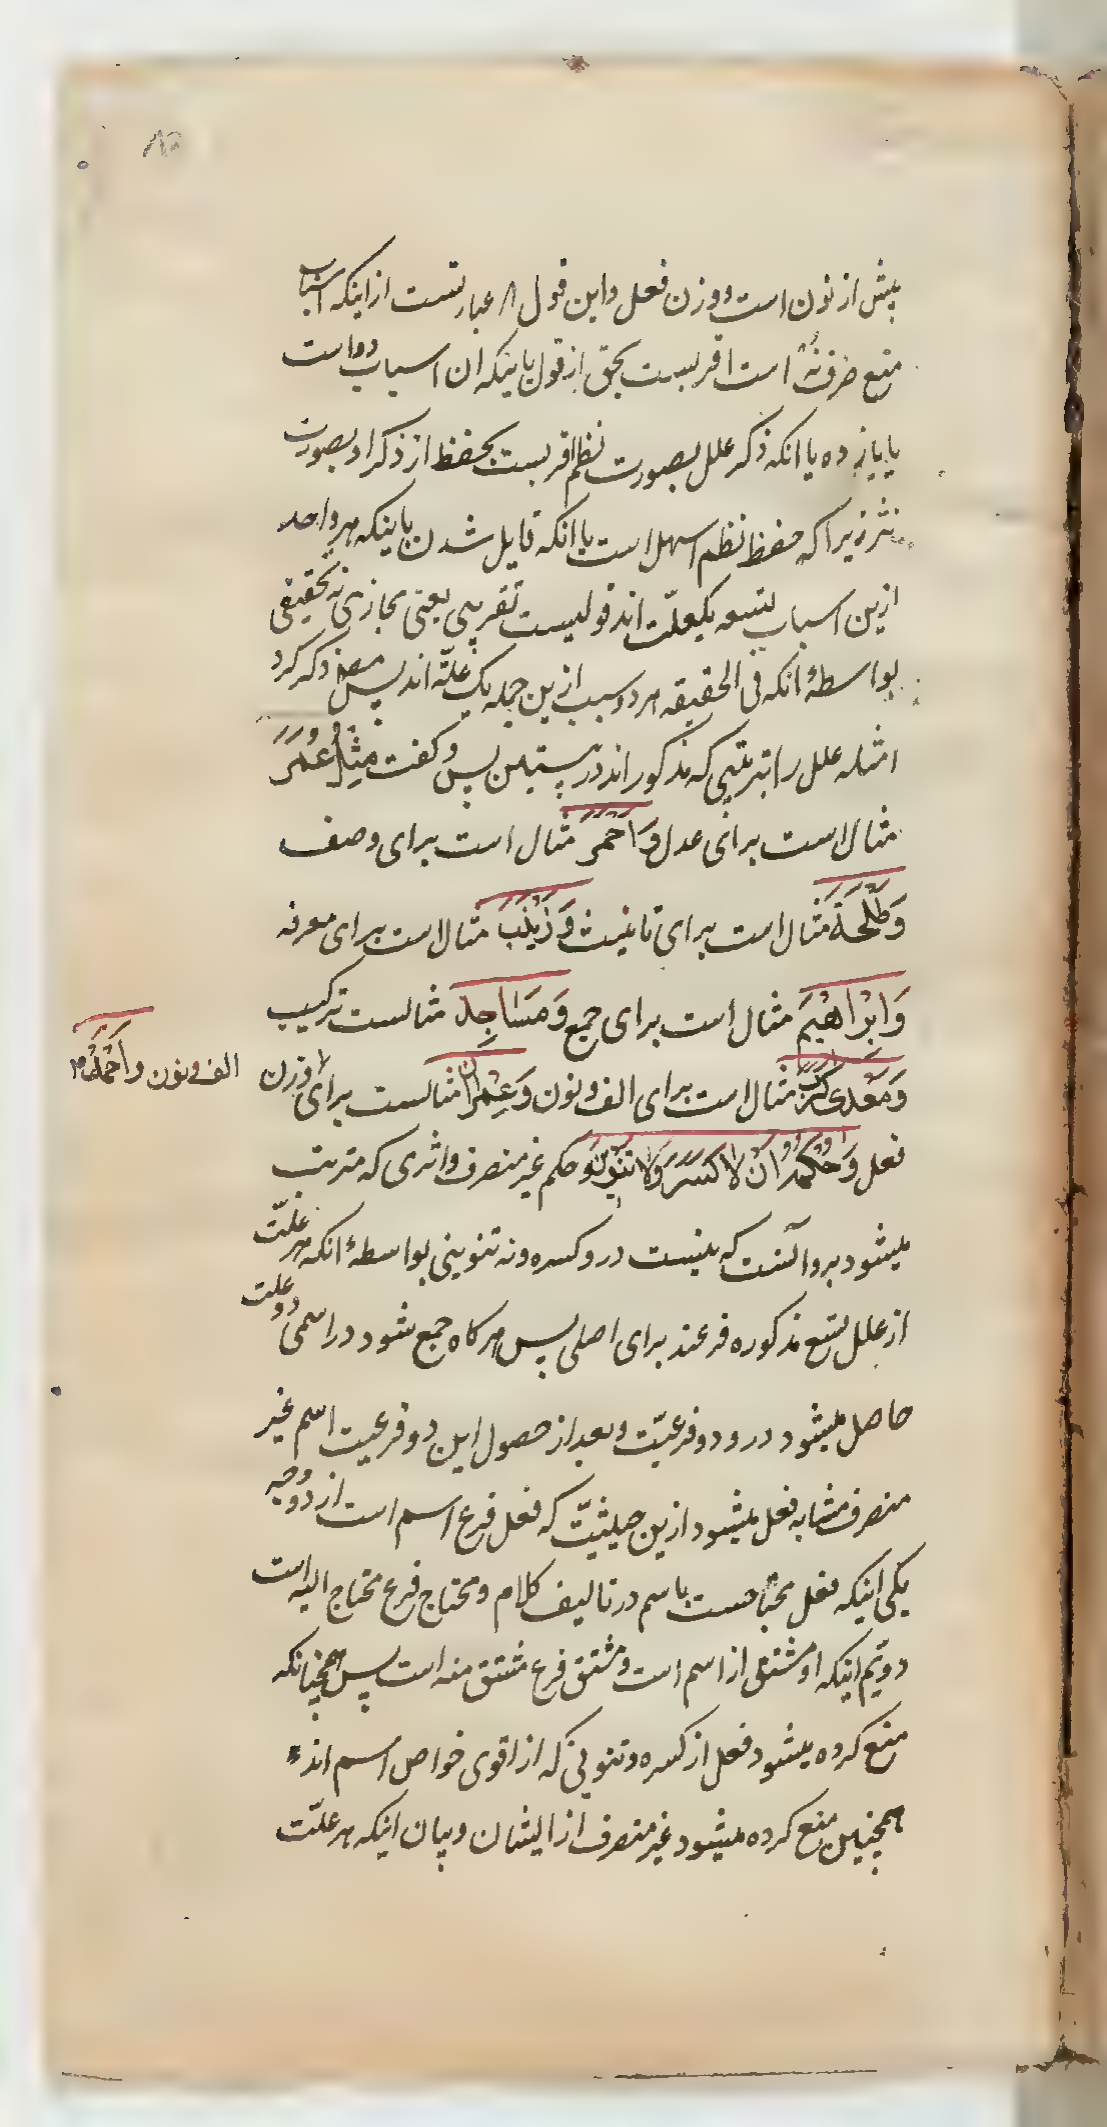 پیش از نون است ووزن فعل واین قول عبارتست از اینکه اسباب
منع صرف نه است اقربست بحق از قول باینکه ان اسباب دواست
یا یازده یا انکه ذکر علل بصورت نظم اقربست بحفظ از ذکر او بصورت
نثر زیرا که حفظ نظم اسهل است یا انکه قایل شدن باینکه هر واحد
ازین اسباب تسعه یکعلّت اند قولیست تقریبی یعنی مجازی نه تحقیقی
بواسطهٔ انکه فی الحقیقه هر دو سبب ازین جمله یک علّة اند پس مص ذکر کرد
امثله علل را بترتیبی که مذکور اند در بیتین پس و کفت مِثلُ عُمَرَ
مثال است برای عدل وَاَحْمَرَ مثال است برای وصف
وَطَلْحَةَ مثال است برای تانیث وَزَیْنَبَ مثال است برای معرفه
وَاِبْرَاهِیْمَ مثال است برای جمع وَمَسَاجِدَ مثالست ترکیب
وَمَعْدِی کَرِبَ مثال است برای الف ونون وَعِمْرَانَ مثالست برای وزن
الف ونون واَحْمَدَ
فعل وَحُکْمُهُ اَنْ لَا کَسْرَ وَلَا تَنْوِیْنَ و حکم غیر منصرف واثری که مترتب
میشود برو آنست که نیست درو کسره ونه تنوینی بواسطهٔ انکه هر علّت
از علل تسع مذکوره فرعند برای اصلی پس هر کاه جمع شود در اسمی دو علت
حاصل میشود درو دو فرعیّت وبعد از حصول این دو فرعیت اسم غیر
منصرف مشابه فعل میشود ازین حیثیّت که فعل فرع اسم است از دو وجه
یکی اینکه فعل محتاجست باسم در تالیف کلام ومحتاج فرع محتاج الیه است
دویّم اینکه او مشتق از اسم است ومشتق فرع مشتق منه است پس همچنانکه
منع کرده میشود فعل از کسره وتنوینی که از اقوی خواص اسم اند
همچنین منع کرده میشود غیر منصرف از ایشان وبیان اینکه هر علّت